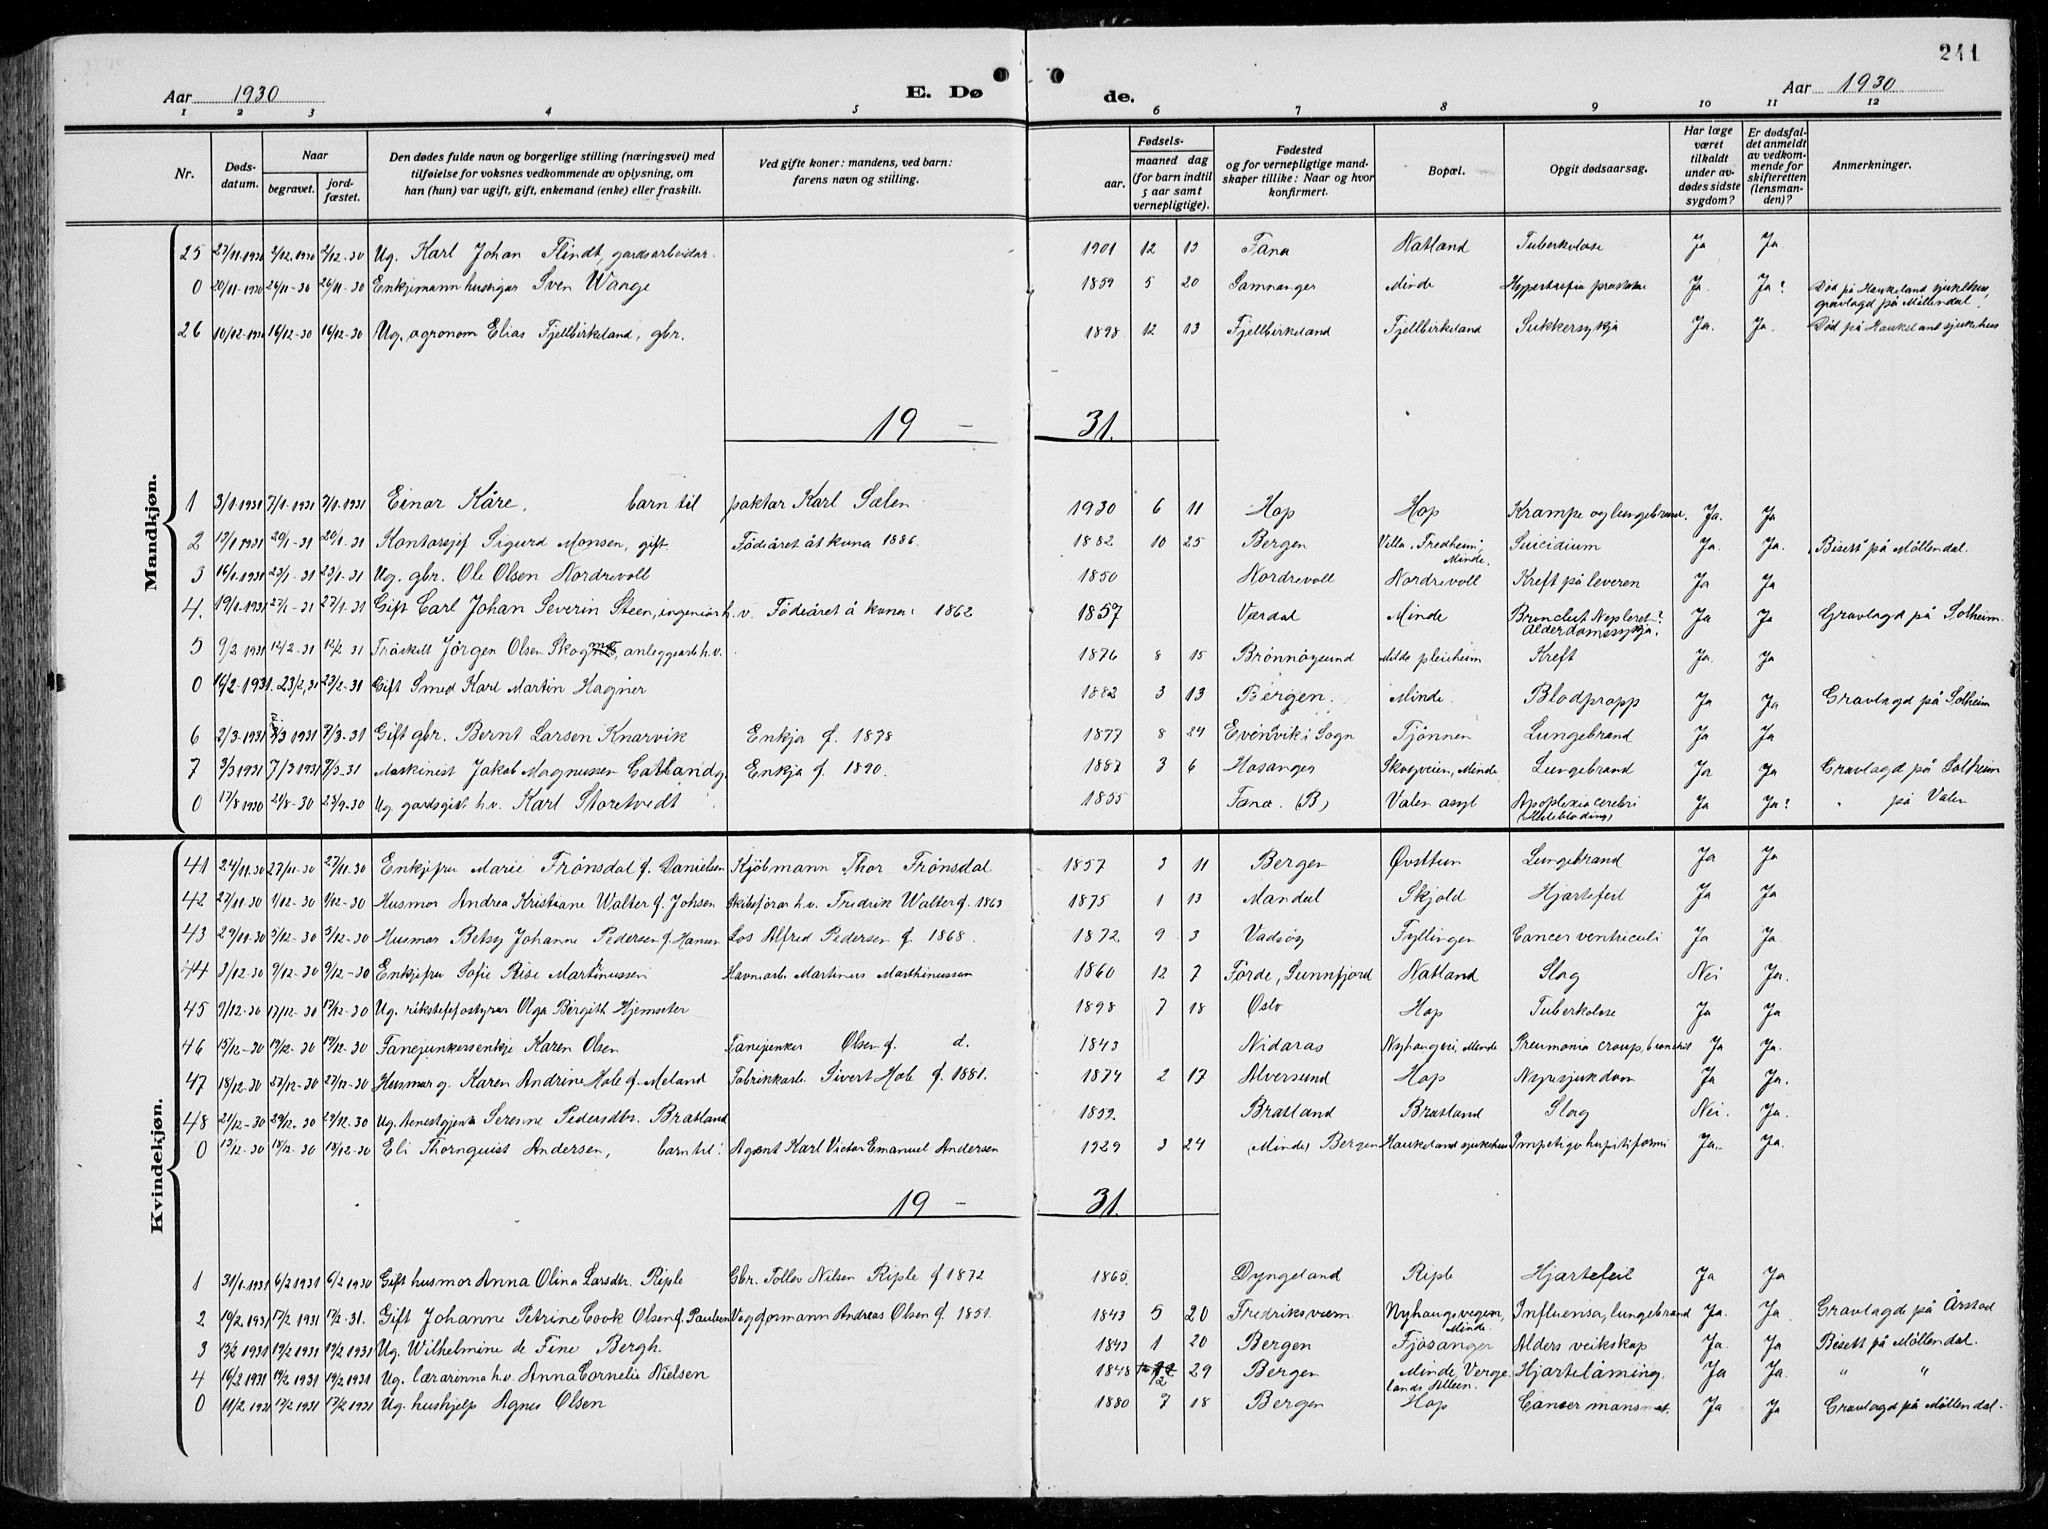 241
Aar 1930 E. Dø de. Aar 1930
1 2 3 4 5 6 7 8 9 10 11 12
Nr.
Dødsdatum.
Naar
begravet.
jordfæstet.
Den dødes fulde navn og borgerlige stilling (næringsvei) med
tilføielse for voksnes vedkommende av oplysning, om
han (hun) var ugift, gift, enkemand (enke) eller fraskilt.
Ved gifte koner: mandens, ved barn:
farens navn og stilling.
Fødsels-
aar.
maaned dag
(for barn indtil
5 aar samt
vernepligtige).
Fødested
og for vernepligtige mand-
skaper tillike: Naar og hvor
konfirmert.
Bopæl.
Opgit dødsaarsag.
Har læge
været
tilkaldt
under av-
dødes sidste
sygdom?
Er dødsfal-
det anmeldt
av vedkom-
mende for
skifteretten
(lensman-
den)?
Anmerkninger.
Mandkjøn.
25 27/11.1930 2/12.1930 2/12-30 Ug. Karl Johan Flindt, gardsarbeidar. 1901 12 13 Fana Natland Tuberkolose Ja Ja
0 20/11-1930 26/11-30 26/11-30 Enkjemann huseigar Sven Waage 1859 5 20 Samnanger Minde Hypertrofia prostatae Ja. Ja? Død på Haukeland sjukehus, gravlagd på Møllendal.
26 10/12-1930 16/12-30 16/12-30 Ug. agronom Elias Fjellbirkeland, gbr. 1898 12 13 Fjellbirkeland Fjellbirkeland Sukkersykja Ja. Ja. Død på Haukeland sjukehus
19 - 31.
1 3/1-1931 7/1-1931 7/1-1931 Einar Kåre, barn til paktar Karl Sælen 1930 6 11 Hop Hop Krampe og lungebrann. Ja. Ja
2 1931 20/1-31 20/1-31 Kontorsjef Sigurd Monsen, gift Fødeåret åt kona 1886. 1882 10 25 Bergen Villa "Fredheim", Minde. Suicidium Ja. Ja. Bisett på Møllendal.
3 16/1-1931 23/1-31 23/1-31 Ug. gbr. Ole Olsen Nordrevoll 1850 Nordrevoll Nordrevoll Kreft på leveren Ja Ja
4. 19/1-1931 27/1-31 27/1-31 Gift Carl Johan Severin Steen, ingeniør h.v. Fødeåret å kona: 1862 1857 Værdal Minde Alderdomssykja. Ja Ja Gravlagd på Solheim.
5 9/2 1931 14/2-31 31 Fråskilt Jørgen Olsen Skog, anleggsarb. h.v. 1876 8 15 Brønnøysund Milde pleieheim Kreft Ja. Ja
0 16/2-1931. 23/2,31 23/2-31 Gift Smed Karl Martin Hagner 1882 3 13 Bergen. Minde. Blodpropp Ja Ja Gravlagd på Solheim
6 2/3-1931 7/3 1931 7/3-31 Gift gbr. Bernt Larsen Knarvik Enkja f. 1878 1877 8 24 Evenvik i Sogn Tjønnen Lungebrand Ja Ja
7 3/3 1931 7/3 1931 7/3-31 Maskinist Jakob Magnussen Catland g. Enkja f. 1890. 1887 3 6 Hosanger Skogveien, Minde Lungebrand Ja Ja Gravlagd på Solheim
0 17/8 1930 21/8-30 23/9-30 Ug. gardsgut h.v. Karl Storetvedt 1855 Fana. (B) Valen asyl Apoplexia cerebri Ja Ja? " på Valen
Kvindekjøn.
41 24/11.30 27/11-30 27/11.30 Enkjefru Marie Frønsdal f. Danielsen Kjøbmann Thor Frønsdal 1857 3 11 Bergen Øvsttun Lungebrand Ja Ja
42 27/11-30 1/12-30 1/12-30 Husmor Andrea Kristiane Walter f. Johsen Skibsförar h.v. Fredrik Walter f. 1863 1875 1 13 Mandal Skjold Hjartefeil Ja Ja
43 29/11-30 5/12-30 5/12-30 Husmor Betsy Johanne Pedersen f. Hansen Los Alfred Pedersen f. 1868. 1872 9 3 Vadsøy Fyllingen Cancer ventriculi Ja Ja.
44 3/12-30 9/12-30 9/12-30 Enkjefru Sofie Rise Martinussen Havnearb. Martines Marthinussen 1860 12 7 Førde, Sunnfjord Natland Slag Nei Ja.
45 9/12-30 17/12-30 17/12-30 Ug. rikstelefostyrar Olga Bergith Hjemseter 1898 7 18 Oslo Hop Tuberkolose Ja Ja
46 15/12-30 19/12-30 19/12-30 Fanejunkersenkje Karen Olsen Fanejunker Olsen f. d. 1843 Nidaras Nyhaugvei, Minde Pneumonia croup, bronchit Ja Ja.
47 18/12-30 27/12-30 27/12-30 Husmor g. Karen Andrine Hole f. Meland Fabrikkarb. Sivert Hole f. 1881. 1874 2 17 Alversund Hop Nyresjukdom Ja Ja.
48 21/12-30 29/12.30 29/12.30 Ug. Serenne Pedersdtr. Bratland 1859. Bratland Bratland Slag Nei. Ja.
0 13/12-30 18/12-30 18/12-30 Eli Thornquist Andersen, barn til: Agent Karl Victor Emanuel Andersen 1929 3 24 (Minde) Bergen Haukeland sjukehus Impetigo Ja.- Ja.
19 - 31.
1 31/1-1931 6/2 1931 6/2 1930 Gift husmor Anna Olina Larsdtr. Riple Gbr. Tollev Nilsen Riple f 1872 1865. Dyngeland Riple Hjartefeil Ja Ja
2 10/2.1931 17/2 1931 17/2-31. Gift Johanne Petrine Cook Olsen f. Paulsen Vegformann Andreas Olsen f. 1851. 1843 5 20 Fredriksværn Nyhaugsvegen, Minde Influensa, lungebrand Ja. Ja. Gravlagd på Årstad
3 13/2 1931 19/2 1931 19/2 1931 Ug. Wilhelmine de Fine Bergh. 1843 1 20 Bergen Fjøsanger Alders veikskap Ja. Ja Bisett på Møllendal.
4 16/2 1931 19/2 1931 19/2 1931 Ug. lærarinna h.v. Anna Cornelie Nielsen 1848 12 29 Bergen Minde, Vergelands Alleen. Hjartelåming. Ja Ja. " "
0 11/2 1931 17/2 1931 17/2 1931 Ug. hushjelp Agnes Olsen 1880 7 18 Bergen Hop Cancer Ja Ja Gravlagd på Møllendal.